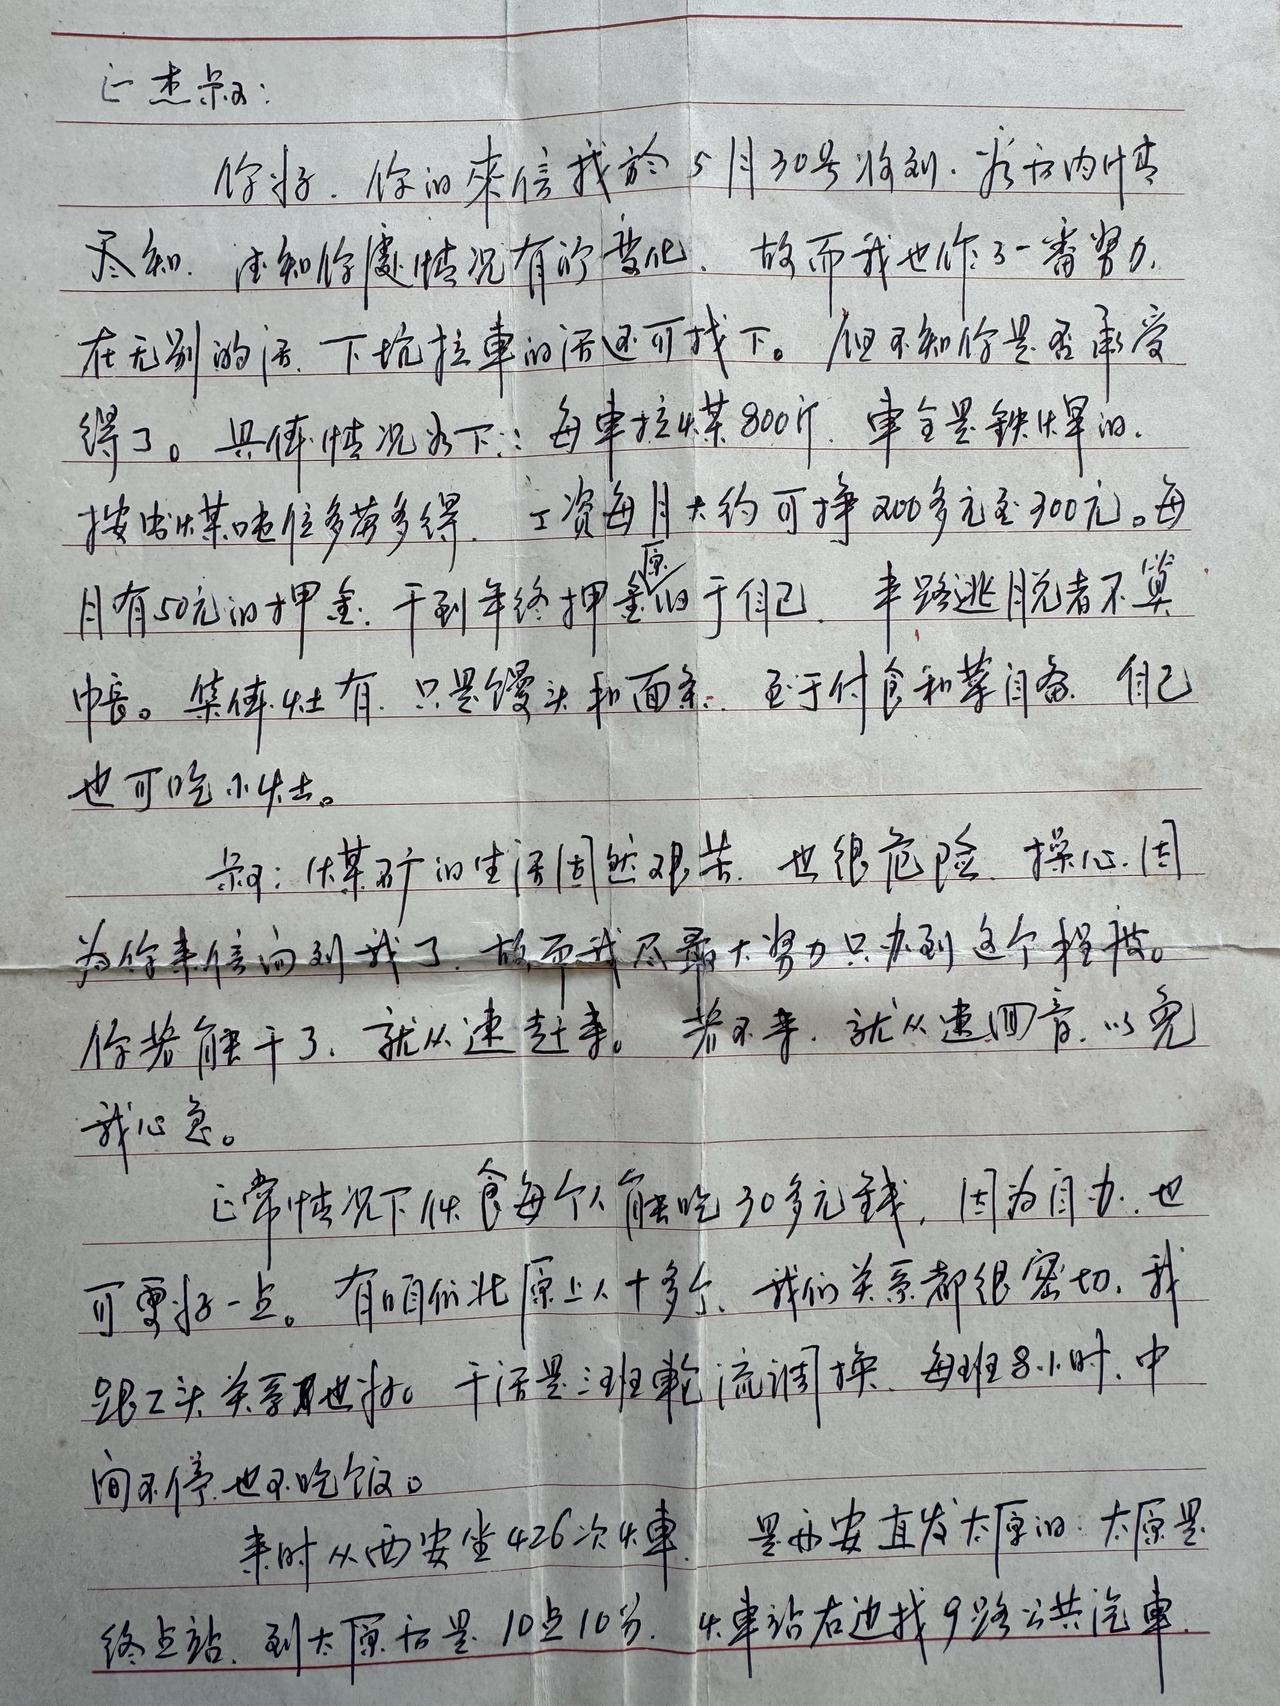 正杰叔:
你好. 你的來信我於5月30号收到. 内情
尽知. 得知你處情况有所变化. 故而我也作了一番努力.
在无别的活. 下坑拉車的活还可找下。 但不知你是否承受
得了。具体情况如下: 每車拉煤800斤. 車全是鉄焊的.
按出煤吨位多劳多得. 工资每月大约可挣200多元至300元。每
月有50元的押金. 干到年终押金原归于自己. 半路逃脱者不算
帐。集体灶有. 只是馒头和面条. 至于付食和菜自备. 自己
也可吃小灶。
叔: 煤矿的生活固然艰苦. 也很危险. 操心. 因
为你来信问到我了. 故而我尽最大努力只办到这个程度。
你若能干了. 就从速赶来。 若不来. 就从速回音. 以免
我心急。
正常情况下伙食每个人能吃30多元錢, 因为自办. 也
可更好一点。有咱们北原上人十多个. 我们关系都很密切. 我
跟工头关系也好。干活是三班輪流调换. 每班8小时. 中
间不停也不吃饭。
来时从西安坐426次火車. 是西安直发太原的. 太原是
终点站. 到太原后是10点10分. 火車站右边找9路公共汽車.